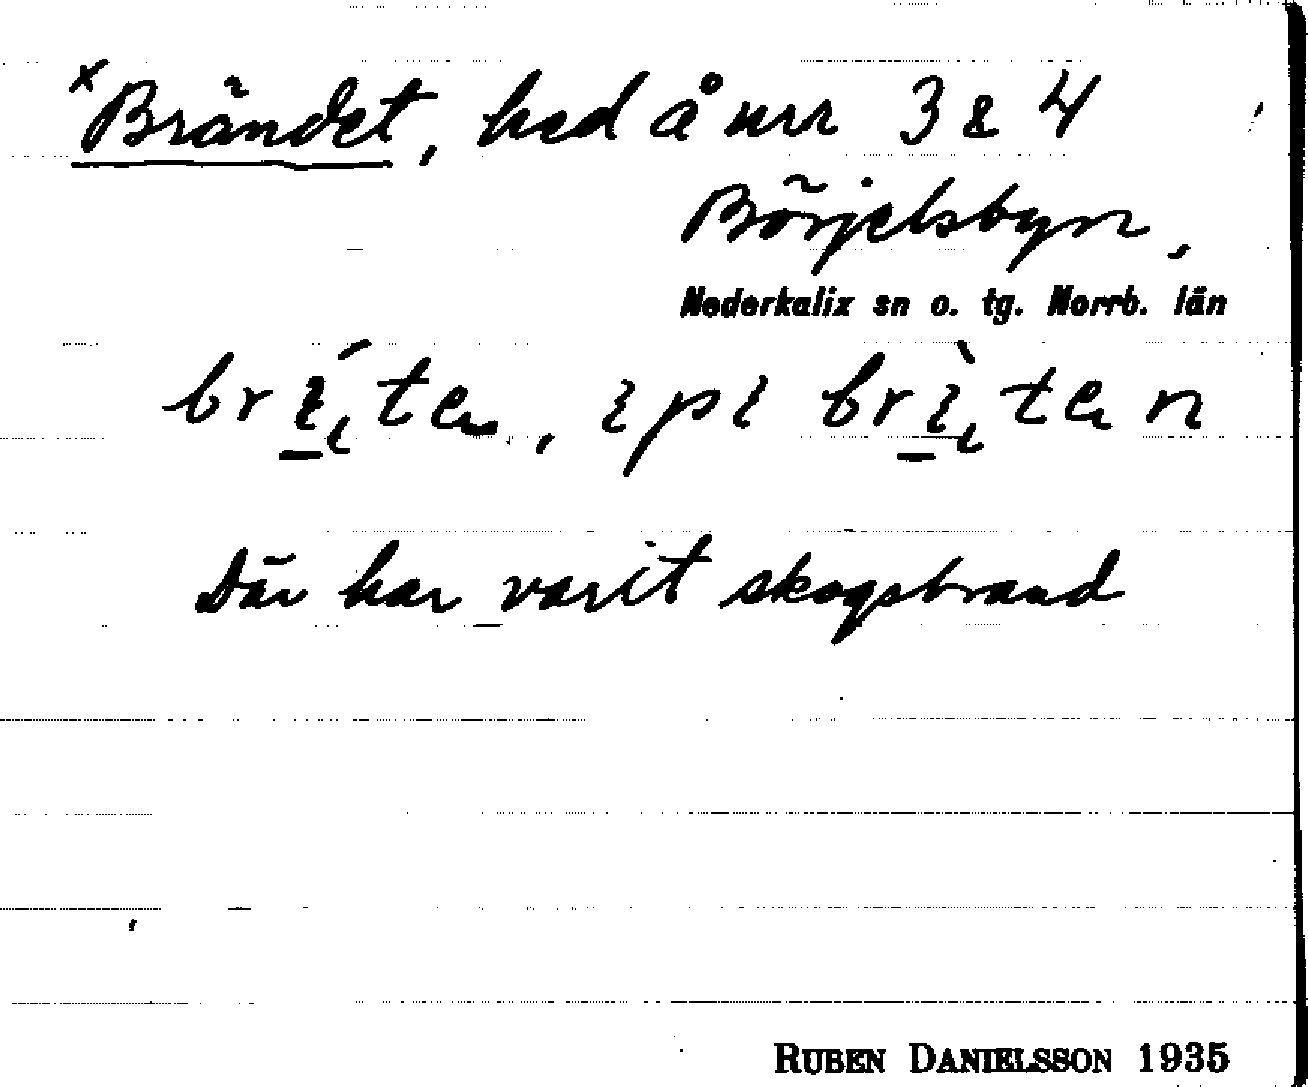 ×Brändet, hed å nrr 3 & 4
Börjelsbyn,
Nederkalix sn o. tg. Norrb. län
Där har varit skogsbrand
RUBEN DANIELSSON 1935